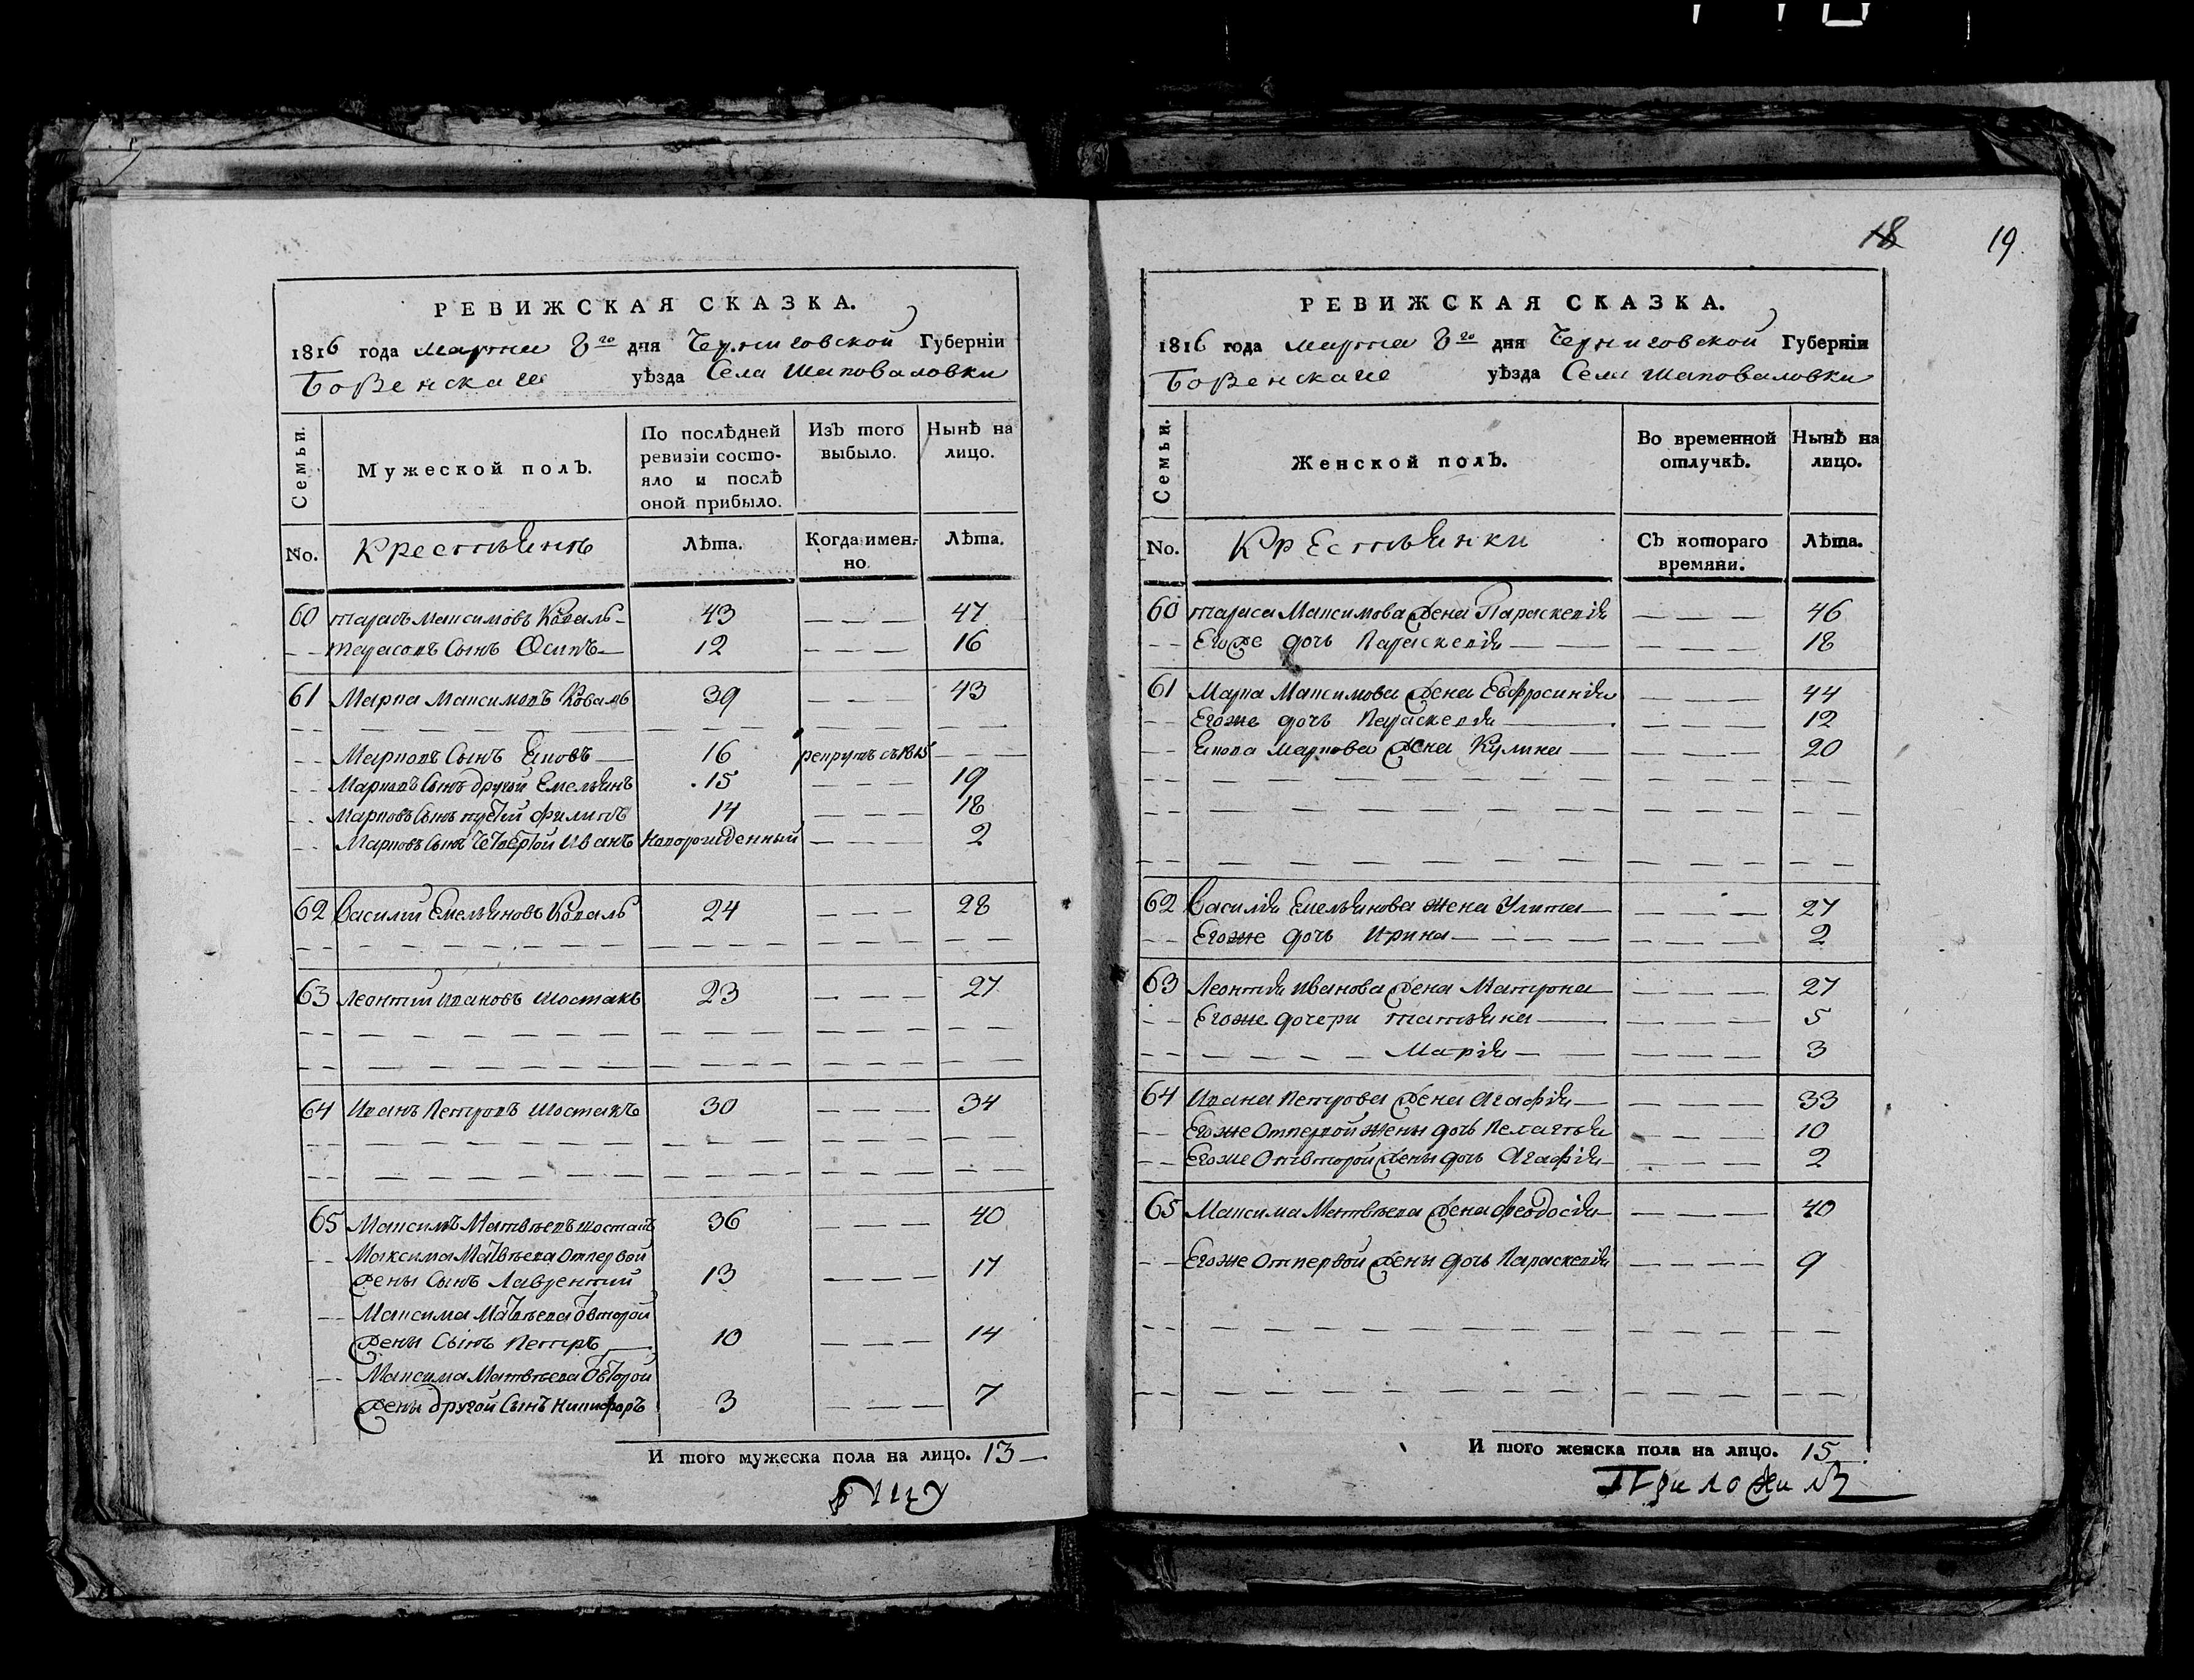 18 19
РЕВИЖСКАЯ СКАЗКА.
1816 года марта 8го дня Черниговской Губерніи
Борзенскаго уѣзда Села Шаповаловки
Семьи.
Мужеской полъ.
По послѣдней ревизіи состояло и послѣ оной прибыло.
Изъ того выбыло.
Нынѣ на лицо.
No. Крестьянъ Лѣта. Когда именно. Лѣта.
60 Тарасъ Максимовъ Коваль 43 — — — 47
— — Тарасовъ Сынъ Осипъ — 12 — — — 16
61 Марка Максимовъ Коваль 39 — — — 43
— — Марковъ Сынъ Яковъ — 16 рекрутъ съ 1815
— — Марковъ Сынъ другой Емельянъ 15 — — — 19
— — Марковъ Сынъ третій Филипъ 14 — — — 18
— — Марковъ Сынъ Четвертой Иванъ Новорожденный — — — 2
62 Василий Емельяновъ Коваль 24 — — — 28
63 Леонтій Ивановъ Шостакъ 23 — — — 27
64 Иванъ Петровъ Шостакъ 30 — — — 34
65 Максимъ Матвѣевъ Шостакъ 36 — — — 40
— — Максима Матвѣева Отпервой
жены Сынъ Лаврентий 13 — — — 17
— — Максима Матвѣева Овторой
жены Сынъ Петръ 10 — — — 14
— — Максима Матвѣева Овторой
жены другой Сынъ Никифоръ 3 — — — 7
И того мужеска пола на лицо. 13 —
РЕВИЖСКАЯ СКАЗКА.
1816 года марта 8го дня Черниговской Губерніи
Борзенскаго уѣзда Села Шаповаловки
Семьи.
Женской полъ.
Во временной отлучкѣ.
Нынѣ на лицо.
No. Крестьянки Съ котораго времяни. Лѣта.
60 Тараса Максимова жена Параскевія — — — 46
— — Егоже дочь Параскевія — — — 18
61 Марка Максимова жена Евфросинія — — — 44
— — Егоже дочь Параскевія — — — 12
— — Якова Маркова жена Кулина — — — 20
62 Василія Емельянова жена Улита — — — 27
— — Егоже дочь Ирина — — — 2
63 Леонтія Иванова жена Матрона — — — 27
— — Егоже дочери Татьяна — — — 5
— — Марія — — — 3
64 Ивана Петрова жена Агафія — — — 33
— — Егоже Отпервой жены дочь Пелагѣя — — — 10
— — Егоже Отвторой жены дочь Агафія — — — 2
65 Максима Матвѣева жена Феодосія — — — 40
— — Егоже Отпервой жены дочь Параскевія — — — 9
И того женска пола на лицо. 15
Приложилъ